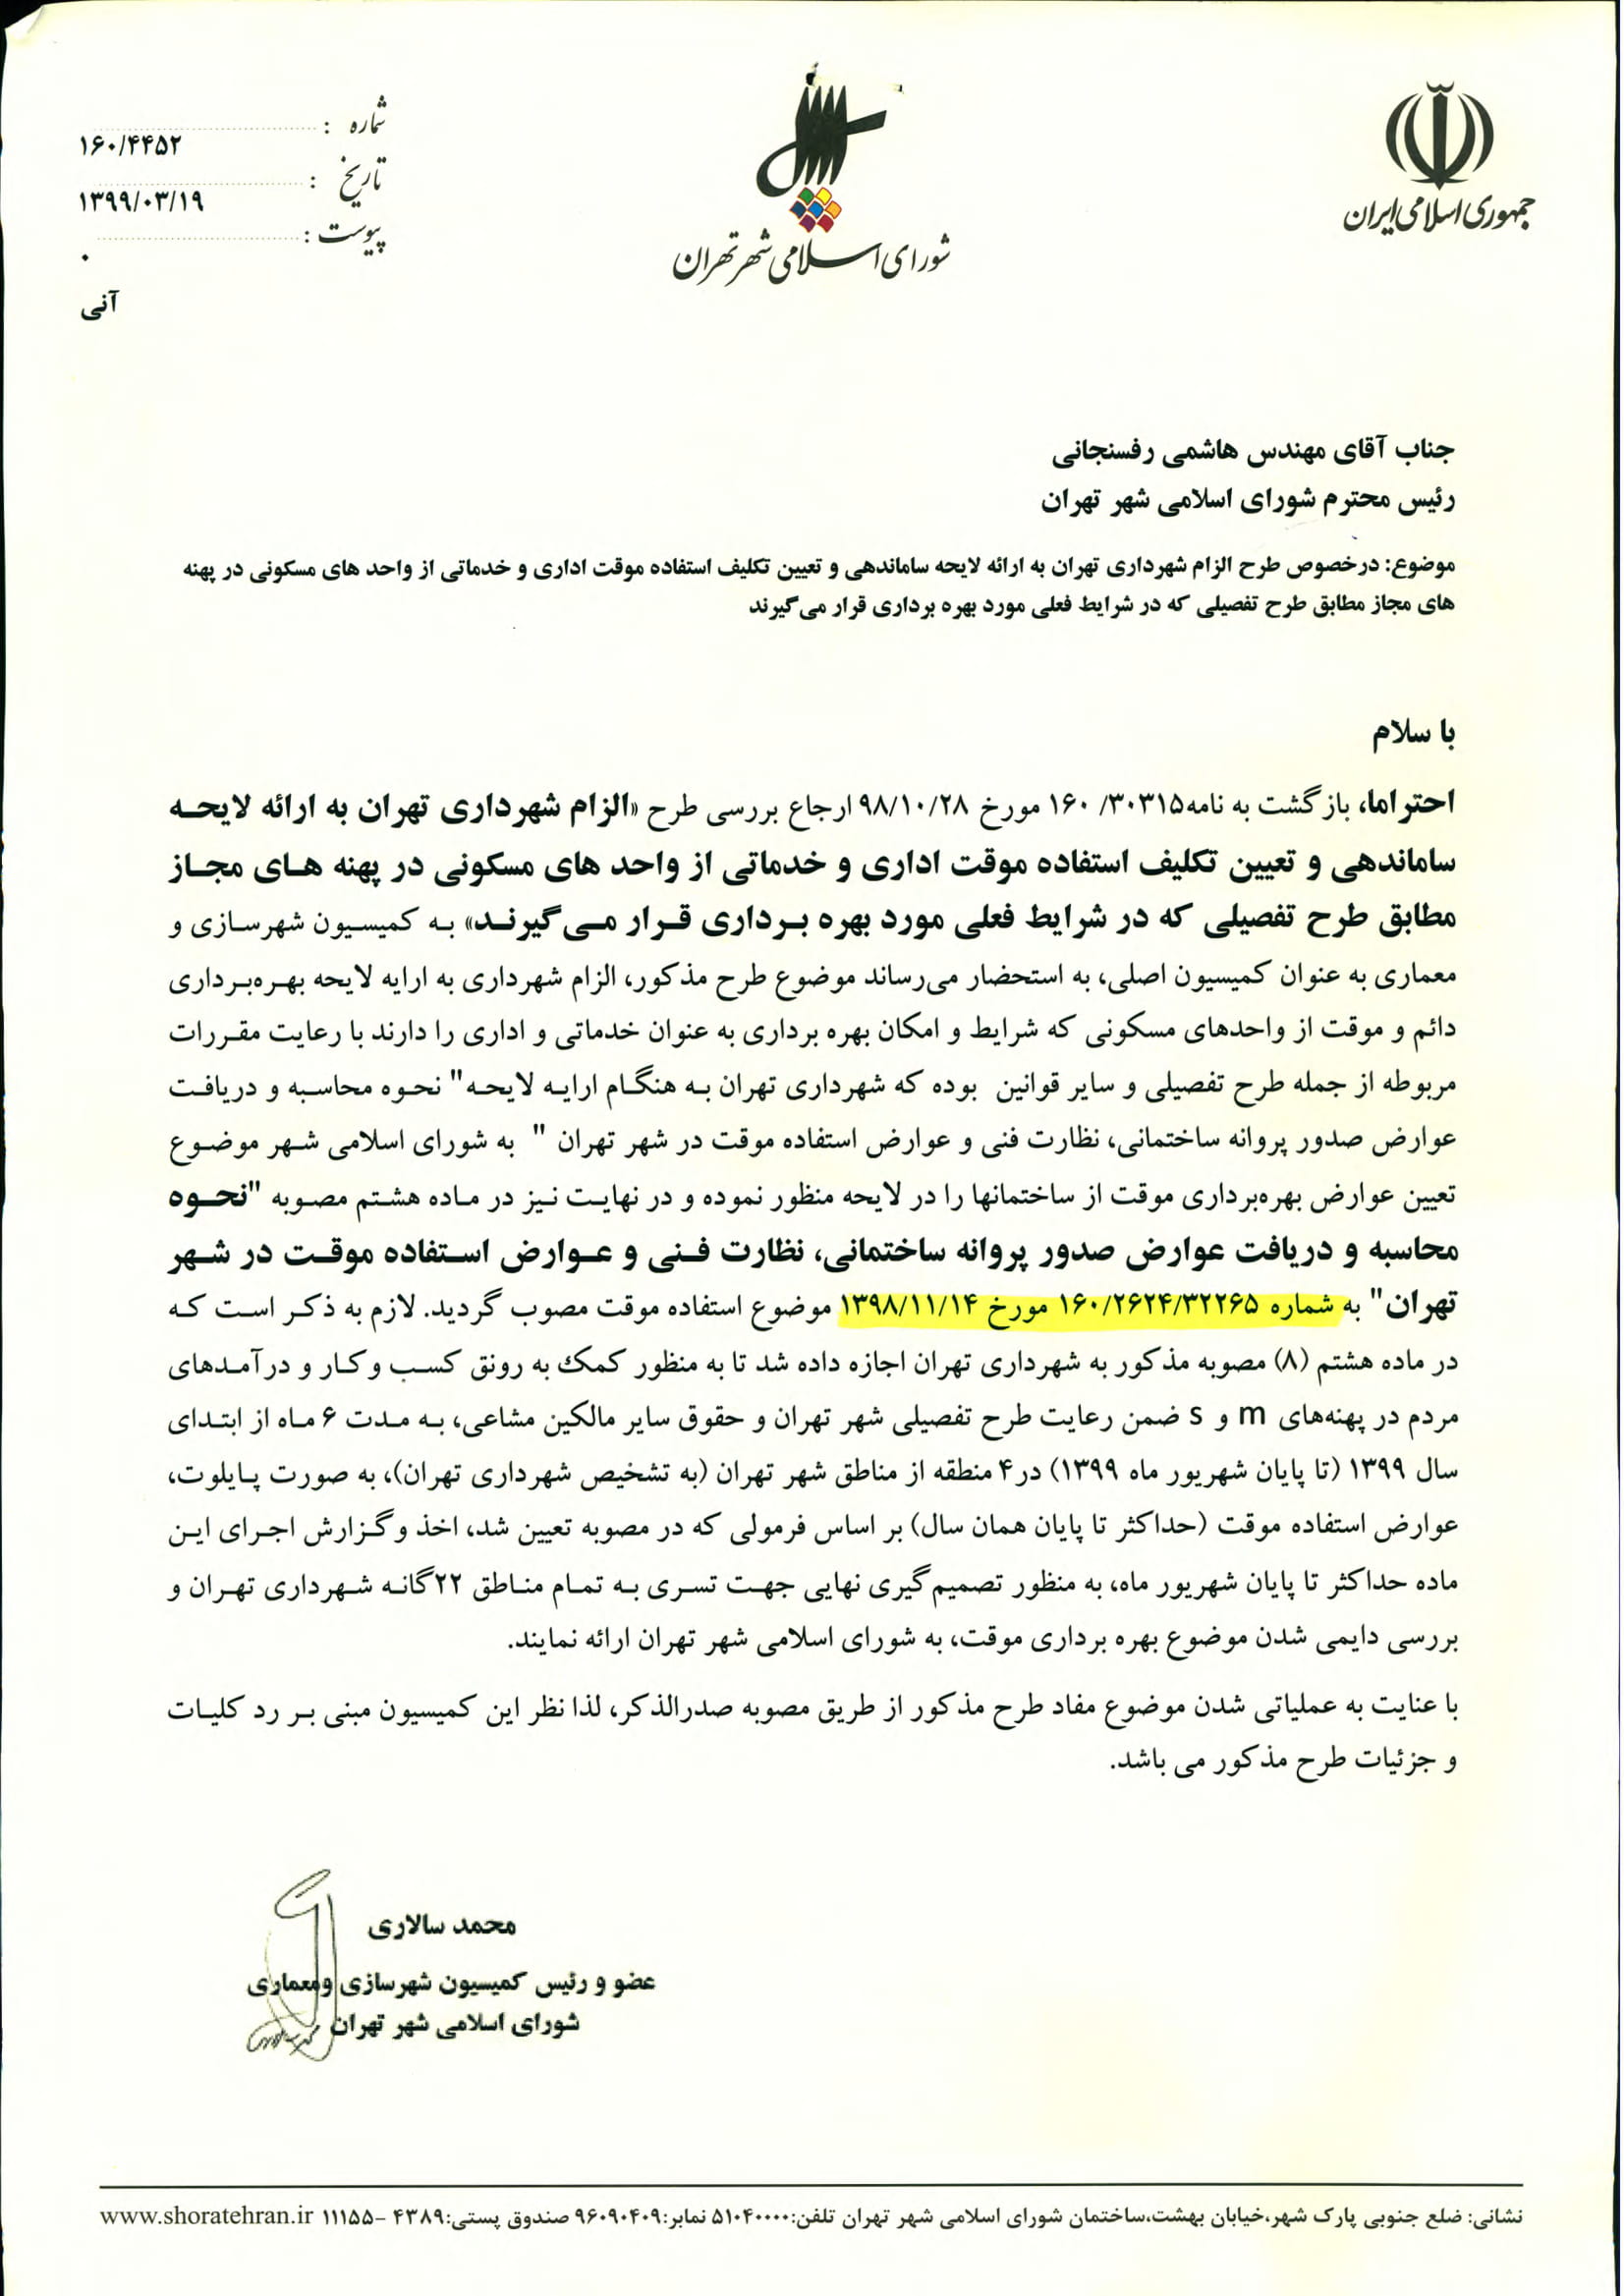 جمهوری اسلامی ایران
شورای اسلامی شهر تهران
شماره :
۱۶۰/۴۴۵۲
تاریخ :
۱۳۹۹/۰۳/۱۹
پیوست :
۰
آنی
جناب آقای مهندس هاشمی رفسنجانی
رئیس محترم شورای اسلامی شهر تهران
موضوع: درخصوص طرح الزام شهرداری تهران به ارائه لایحه ساماندهی و تعیین تکلیف استفاده موقت اداری و خدماتی از واحد های مسکونی در پهنه
های مجاز مطابق طرح تفصیلی که در شرایط فعلی مورد بهره برداری قرار می گیرند
با سلام
احتراما، بازگشت به نامه۳۰۳۱۵/ ۱۶۰ مورخ ۹۸/۱۰/۲۸ ارجاع بررسی طرح «الزام شهرداری تهران به ارائه لایحه
ساماندهی و تعیین تکلیف استفاده موقت اداری و خدماتی از واحد های مسکونی در پهنه های مجاز
مطابق طرح تفصیلی که در شرایط فعلی مورد بهره برداری قرار می گیرند» به کمیسیون شهرسازی و
معماری به عنوان کمیسیون اصلی، به استحضار می‌رساند موضوع طرح مذکور، الزام شهرداری به ارایه لایحه بهره‌برداری
دائم و موقت از واحدهای مسکونی که شرایط و امکان بهره برداری به عنوان خدماتی و اداری را دارند با رعایت مقررات
مربوطه از جمله طرح تفصیلی و سایر قوانین بوده که شهرداری تهران به هنگام ارایه لایحه" نحوه محاسبه و دریافت
عوارض صدور پروانه ساختمانی، نظارت فنی و عوارض استفاده موقت در شهر تهران " به شورای اسلامی شهر موضوع
تعیین عوارض بهره‌برداری موقت از ساختمانها را در لایحه منظور نموده و در نهایت نیز در ماده هشتم مصوبه "نحوه
محاسبه و دریافت عوارض صدور پروانه ساختمانی، نظارت فنی و عوارض استفاده موقت در شهر
تهران" به شماره ۱۶۰/۲۶۲۴/۳۲۲۶۵ مورخ ۱۳۹۸/۱۱/۱۴ موضوع استفاده موقت مصوب گردید. لازم به ذکر است که
در ماده هشتم (۸) مصوبه مذکور به شهرداری تهران اجازه داده شد تا به منظور کمک به رونق کسب و کار و درآمدهای
مردم در پهنه‌های m و s ضمن رعایت طرح تفصیلی شهر تهران و حقوق سایر مالکین مشاعی، به مدت ۶ ماه از ابتدای
سال ۱۳۹۹ (تا پایان شهریور ماه ۱۳۹۹) در۴ منطقه از مناطق شهر تهران (به تشخیص شهرداری تهران)، به صورت پایلوت،
عوارض استفاده موقت (حداکثر تا پایان همان سال) بر اساس فرمولی که در مصوبه تعیین شد، اخذ و گزارش اجرای این
ماده حداکثر تا پایان شهریور ماه، به منظور تصمیم گیری نهایی جهت تسری به تمام مناطق ۲۲گانه شهرداری تهران و
بررسی دایمی شدن موضوع بهره برداری موقت، به شورای اسلامی شهر تهران ارائه نمایند.
با عنایت به عملیاتی شدن موضوع مفاد طرح مذکور از طریق مصوبه صدرالذکر، لذا نظر این کمیسیون مبنی بر رد کلیات
و جزئیات طرح مذکور می باشد.
محمد سالاری
عضو و رئیس کمیسیون شهرسازی ومعماری
شورای اسلامی شهر تهران
نشانی: ضلع جنوبی پارک شهر،خیابان بهشت،ساختمان شورای اسلامی شهر تهران تلفن:۵۱۰۴۰۰۰۰ نمابر:۹۶۰۹۰۴۰۹ صندوق پستی:۴۳۸۹ –۱۱۱۵۵ www.shoratehran.ir